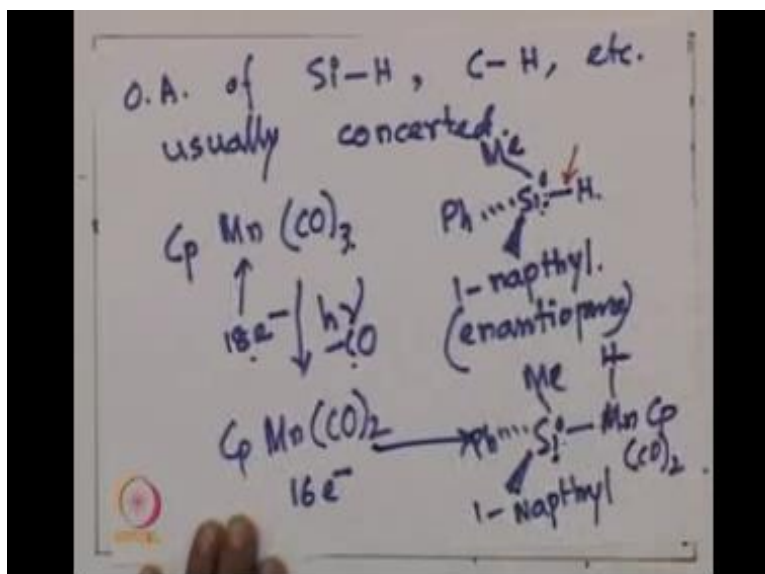 O.A. of Si-H, C-H, etc.
usually concerted.
Me
Ph Si-H.
1-napthyl.
(enantiopure)
Cp Mn (CO)3
18e- hν
-CO
Cp Mn(CO)2
16e-
Me H
Ph Si-Mn Cp
(CO)2
1-Napthyl